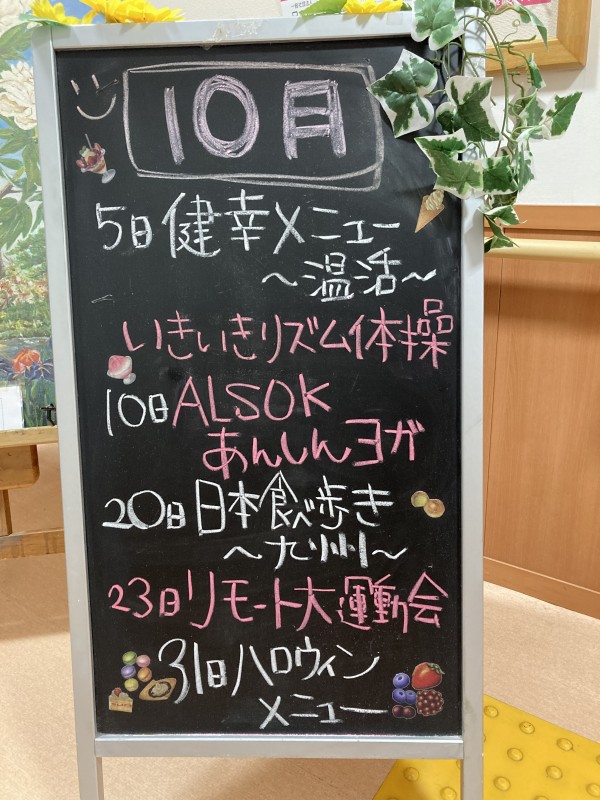 10月
5日健幸メニュー
〜温活〜
いきいきリズム体操
10日ALSOK
あんしんヨガ
20日日本食べ歩き
〜九州〜
23日リモート大運動会
31日ハロウィン
メニュー